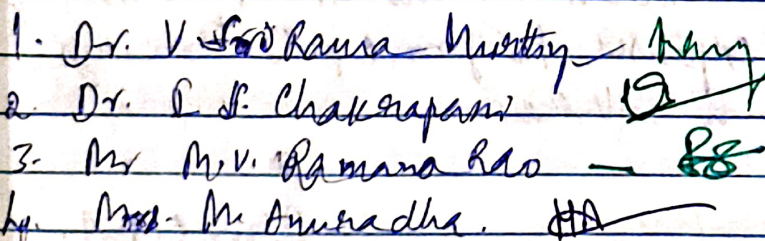 1. Dr. V Rama Murthy -
2. Dr. S. Chakrapani
3. Mr M.V. Ramana Rao —
4. Mrs. M. Anuradha.